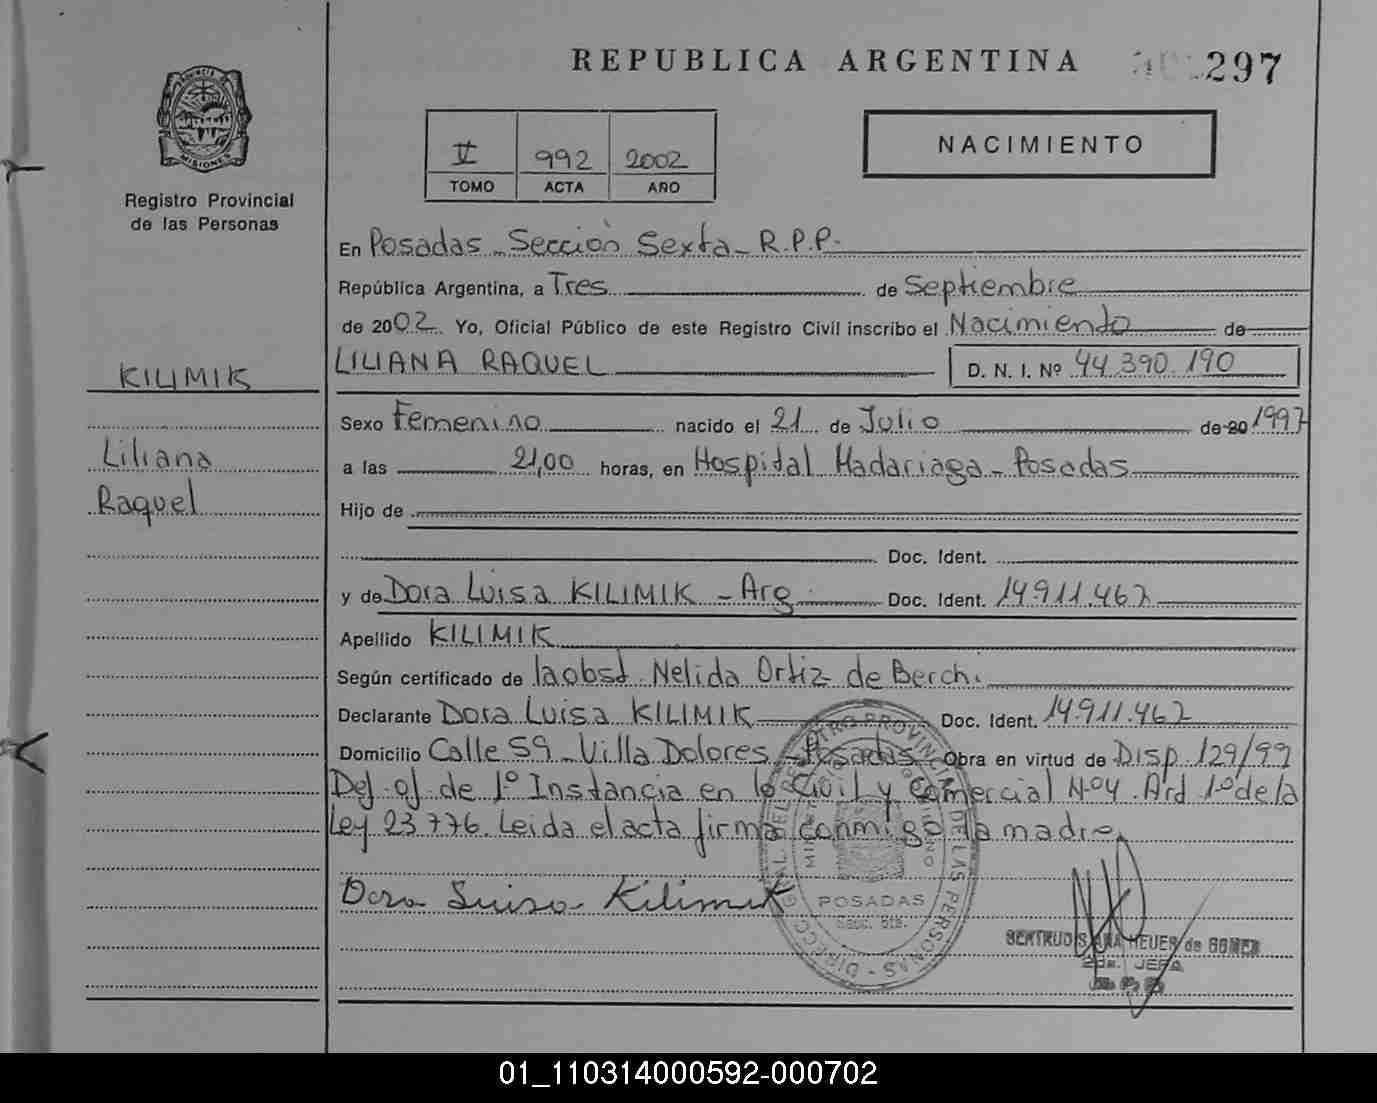 REPUBLICA ARGENTINA 297
PROVINCIA DE MISIONES
Registro Provincial
de las Personas
V 992 2002
TOMO ACTA AÑO
NACIMIENTO
En Posadas - Sección Sexta - R.P.P.
República Argentina, a Tres de Septiembre
de 2002 Yo, Oficial Público de este Registro Civil inscribo el Nacimiento de
KILIMIK
LILIANA RAQUEL D. N. I. Nº 44.390.190
Sexo Femenino nacido el 21 de Julio de 20 1997
Liliana
a las 21,00 horas, en Hospital Madariaga - Posadas
Raquel
Hijo de
Doc. Ident.
y de Dora Luisa KILIMIK - Arg Doc. Ident. 14.911.462
Apellido KILIMIK
Según certificado de la obst. Nelida Ortiz de Berchi
Declarante Dora Luisa KILIMIK Doc. Ident. 14.911.462
Domicilio Calle 59 - Villa Dolores - Posadas Obra en virtud de Disp. 129/99
Def. of. de 1º Instancia en lo Civil y Comercial Nº 4. Art 1º de la
Ley 23776. Leida el acta firma conmigo la madre.
Dora Luisa Kilimik
POSADAS
GERTRUDIS ANA HEUER de GOMEZ
2da. JEFA
01_110314000592-000702